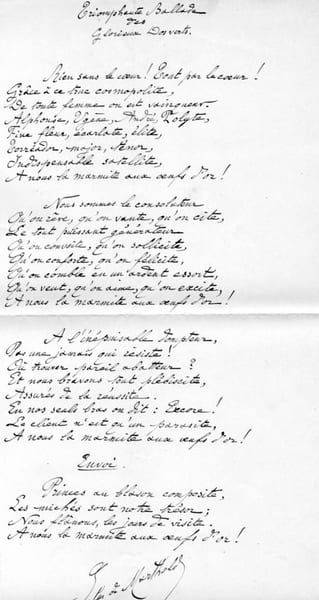 Triomphante Ballade
des
Glorieux Dos verts.
Rien sans le cœur ! Tout par le cœur !
Grâce à ce truc cosmopolite,
De toute femme on est vainqueur.
Alphonse, Ugène, André, Polyte,
Fine fleur, écarlate, élite,
Torréador, major, ténor,
Indispensable satellite,
A nous la marmite aux œufs d'or !
Nous sommes le consolateur
Qu'on rêve, qu'on vante, qu'on cite,
Le tout puissant générateur
Qu'on convoite, qu'on sollicite,
Qu'on conforte, qu'on félicite,
Qu'on comble en un ardent essort,
Qu'on veut, qu'on aime, qu'on excite,
A nous la marmite aux œufs d'or !
A l'inépuisable dompteur,
Pas une jamais qui résiste !
Où trouver pareil abatteur ?
Et nous bravons tout plébiscite,
Assurés de la réussite.
En nos seuls bras on dit : Encore !
Le client n'est qu'un parasite,
A nous la marmite aux œufs d'or !
Envoi.
Princes au blason composite,
Les michés sont notre trésor ;
Nous flânons, les jours de visite.
A nous la marmite aux œufs d'or !
de Marthold